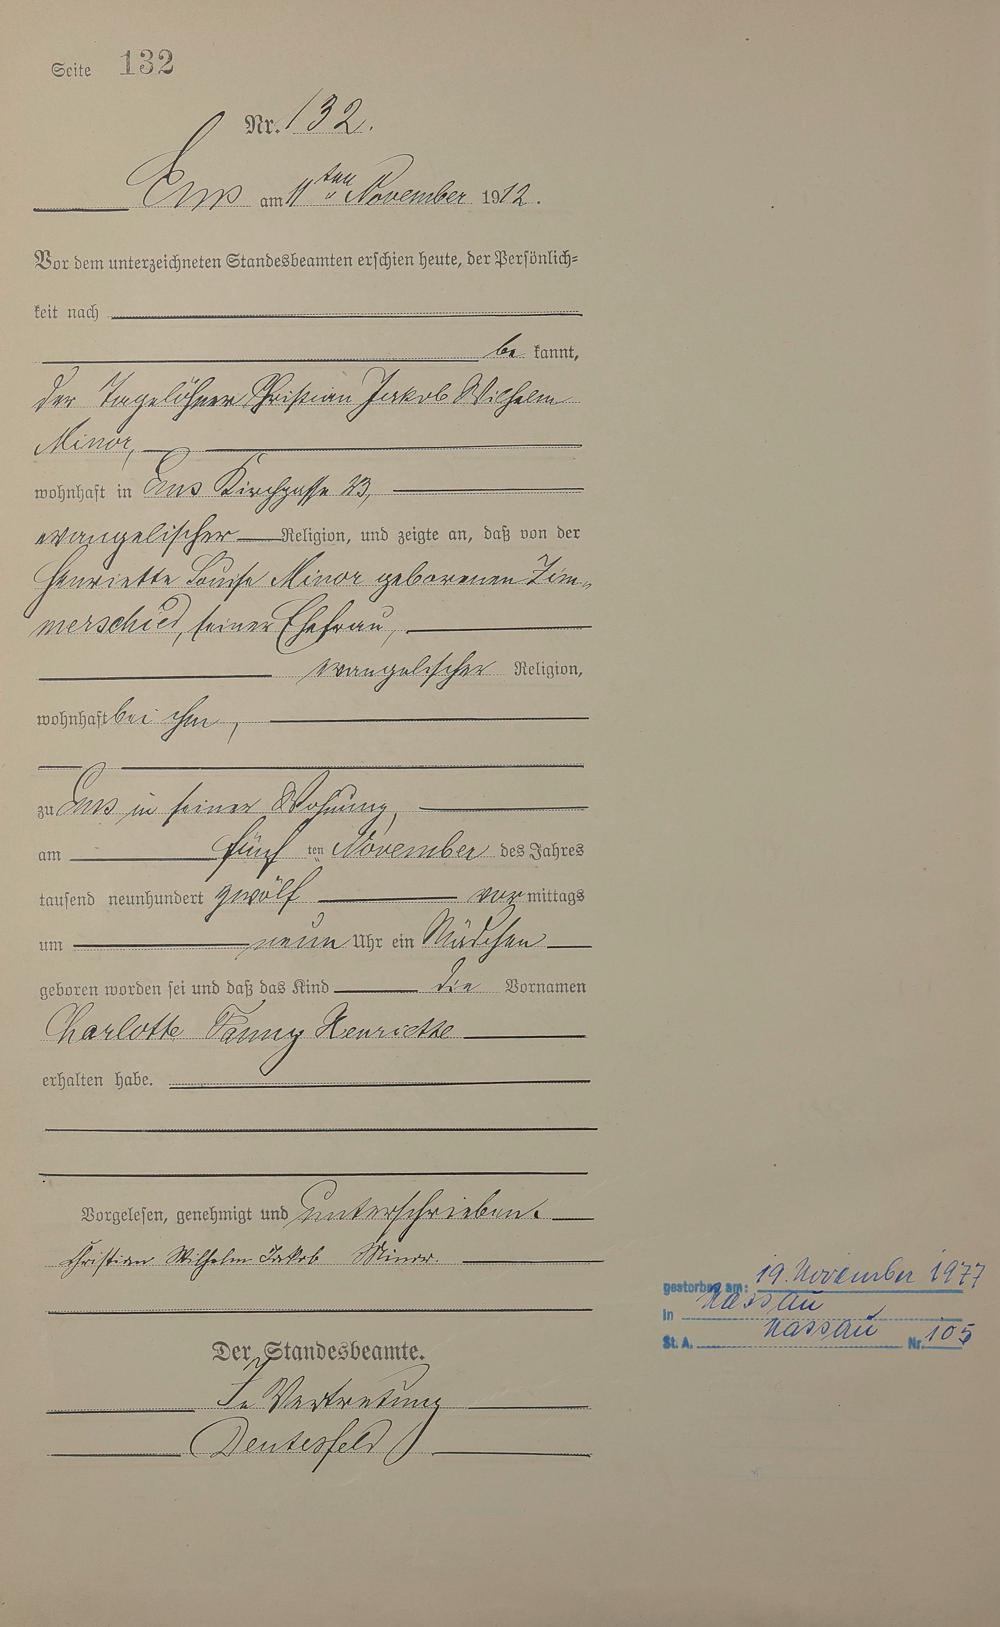 Seite 132
Nr. 132.
Ems am 11ten November 1912.
Vor dem unterzeichneten Standesbeamten erschien heute, der Persönlich=
keit nach
be kannt,
der Tagelöhner Christian Jakob Wilhelm
Minor,
wohnhaft in Ems Kirchgasse 23,
evangelischer Religion, und zeigte an, daß von der
Henriette Louise Minor geborenen Zim=
merschied, seiner Ehefrau,
evangelischer Religion,
wohnhaft bei ihm,
zu Ems in seiner Wohnung,
am fünf ten November des Jahres
tausend neunhundert zwölf vor mittags
um neun Uhr ein Mädchen
geboren worden sei und daß das Kind die Vornamen
Charlotte Fanny Henriette
erhalten habe.
Vorgelesen, genehmigt und unterschrieben.
Christian Wilhelm Jakob Minor.
Der Standesbeamte.
In Vertretung
Deutesfeld
gestorben am: 19. November 1977
in Nassau
St. A. Nassau Nr. 105